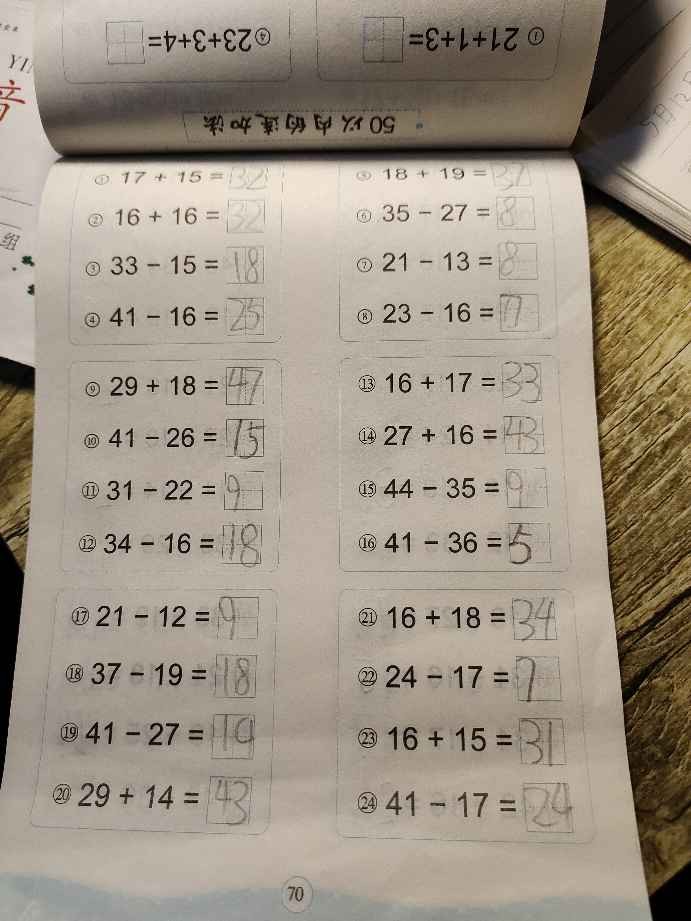 ④ 23+3+4=
① 21+1+3=
50以内的连加法
① 17 + 15 = 32
② 16 + 16 = 32
③ 33 − 15 = 18
④ 41 − 16 = 25
⑤ 18 + 19 = 37
⑥ 35 − 27 = 8
⑦ 21 − 13 = 8
⑧ 23 − 16 = 7
⑨ 29 + 18 = 47
⑩ 41 − 26 = 15
⑪ 31 − 22 = 9
⑫ 34 − 16 = 18
⑬ 16 + 17 = 33
⑭ 27 + 16 = 43
⑮ 44 − 35 = 9
⑯ 41 − 36 = 5
⑰ 21 − 12 = 9
⑱ 37 − 19 = 18
⑲ 41 − 27 = 14
⑳ 29 + 14 = 43
㉑ 16 + 18 = 34
㉒ 24 − 17 = 7
㉓ 16 + 15 = 31
㉔ 41 − 17 = 24
70
YI
音
组